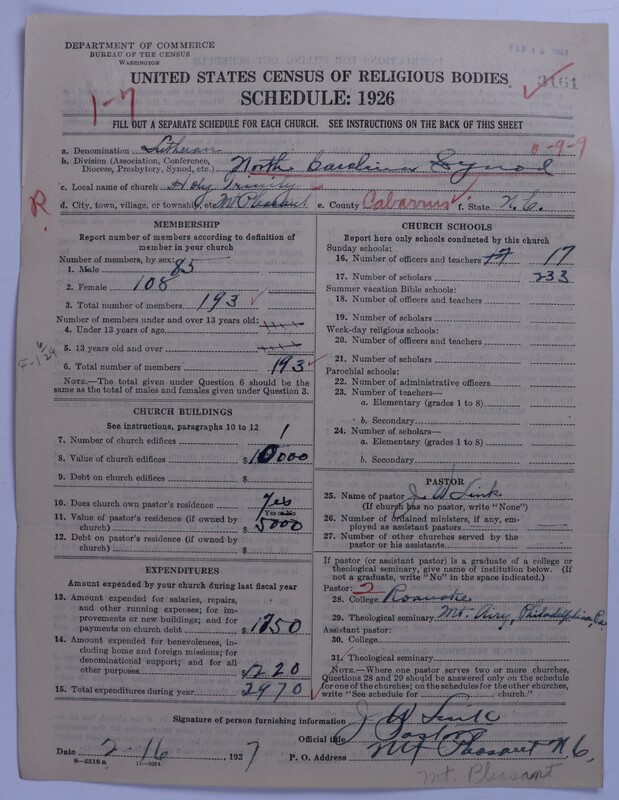 DEPARTMENT OF COMMERCE
BUREAU OF THE CENSUS
WASHINGTON
UNITED STATES CENSUS OF RELIGIOUS BODIES
3161
SCHEDULE: 1926
1-7
FILL OUT A SEPARATE SCHEDULE FOR EACH CHURCH. SEE INSTRUCTIONS ON THE BACK OF THIS SHEET
a. Denomination Lutheran
b. Division (Association, Conference, Diocese, Presbytery, Synod, etc.) North Carolina Synod
c. Local name of church Holy Trinity
d. City, town, village, or township Mt Pleasant e. County Cabarrus f. State N. C.
MEMBERSHIP
Report number of members according to definition of member in your church
Number of members, by sex:
1. Male 85
2. Female 108
3. Total number of members 193
Number of members under and over 13 years old:
4. Under 13 years of age
5. 13 years old and over
6. Total number of members 193
NOTE.—The total given under Question 6 should be the same as the total of males and females given under Question 3.
CHURCH BUILDINGS
See instructions, paragraphs 10 to 12
7. Number of church edifices 1
8. Value of church edifices $10000
9. Debt on church edifices $
10. Does church own pastor's residence Yes
Yes or No
11. Value of pastor's residence (if owned by church) $5000
12. Debt on pastor's residence (if owned by church) $
EXPENDITURES
Amount expended by your church during last fiscal year
13. Amount expended for salaries, repairs, and other running expenses; for improvements or new buildings; and for payments on church debt $1750
14. Amount expended for benevolences, including home and foreign missions; for denominational support; and for all other purposes 1220
15. Total expenditures during year 2970
CHURCH SCHOOLS
Report here only schools conducted by this church
Sunday schools:
16. Number of officers and teachers 17
17. Number of scholars 233
Summer vacation Bible schools:
18. Number of officers and teachers
19. Number of scholars
Week-day religious schools:
20. Number of officers and teachers
21. Number of scholars
Parochial schools:
22. Number of administrative officers
23. Number of teachers—
a. Elementary (grades 1 to 8)
b. Secondary
24. Number of scholars—
a. Elementary (grades 1 to 8)
b. Secondary
PASTOR
25. Name of pastor J W Link
(If church has no pastor, write "None")
26. Number of ordained ministers, if any, employed as assistant pastors
27. Number of other churches served by the pastor or his assistants
If pastor (or assistant pastor) is a graduate of a college or theological seminary, give name of institution below. (If not a graduate, write "No" in the space indicated.)
Pastor: 2
28. College Roanoke
29. Theological seminary Mt. Airy, Philadelphia, Pa
Assistant pastor:
30. College
31. Theological seminary
NOTE.—Where one pastor serves two or more churches, Questions 28 and 29 should be answered only on the schedule for one of the churches; on the schedules for the other churches, write "See schedule for church."
Signature of person furnishing information J W Link
Official title Pastor
Date 2-16 1927 P. O. Address Mt Pleasant N C.
8-5518 a 11-9034
Mt. Pleasant